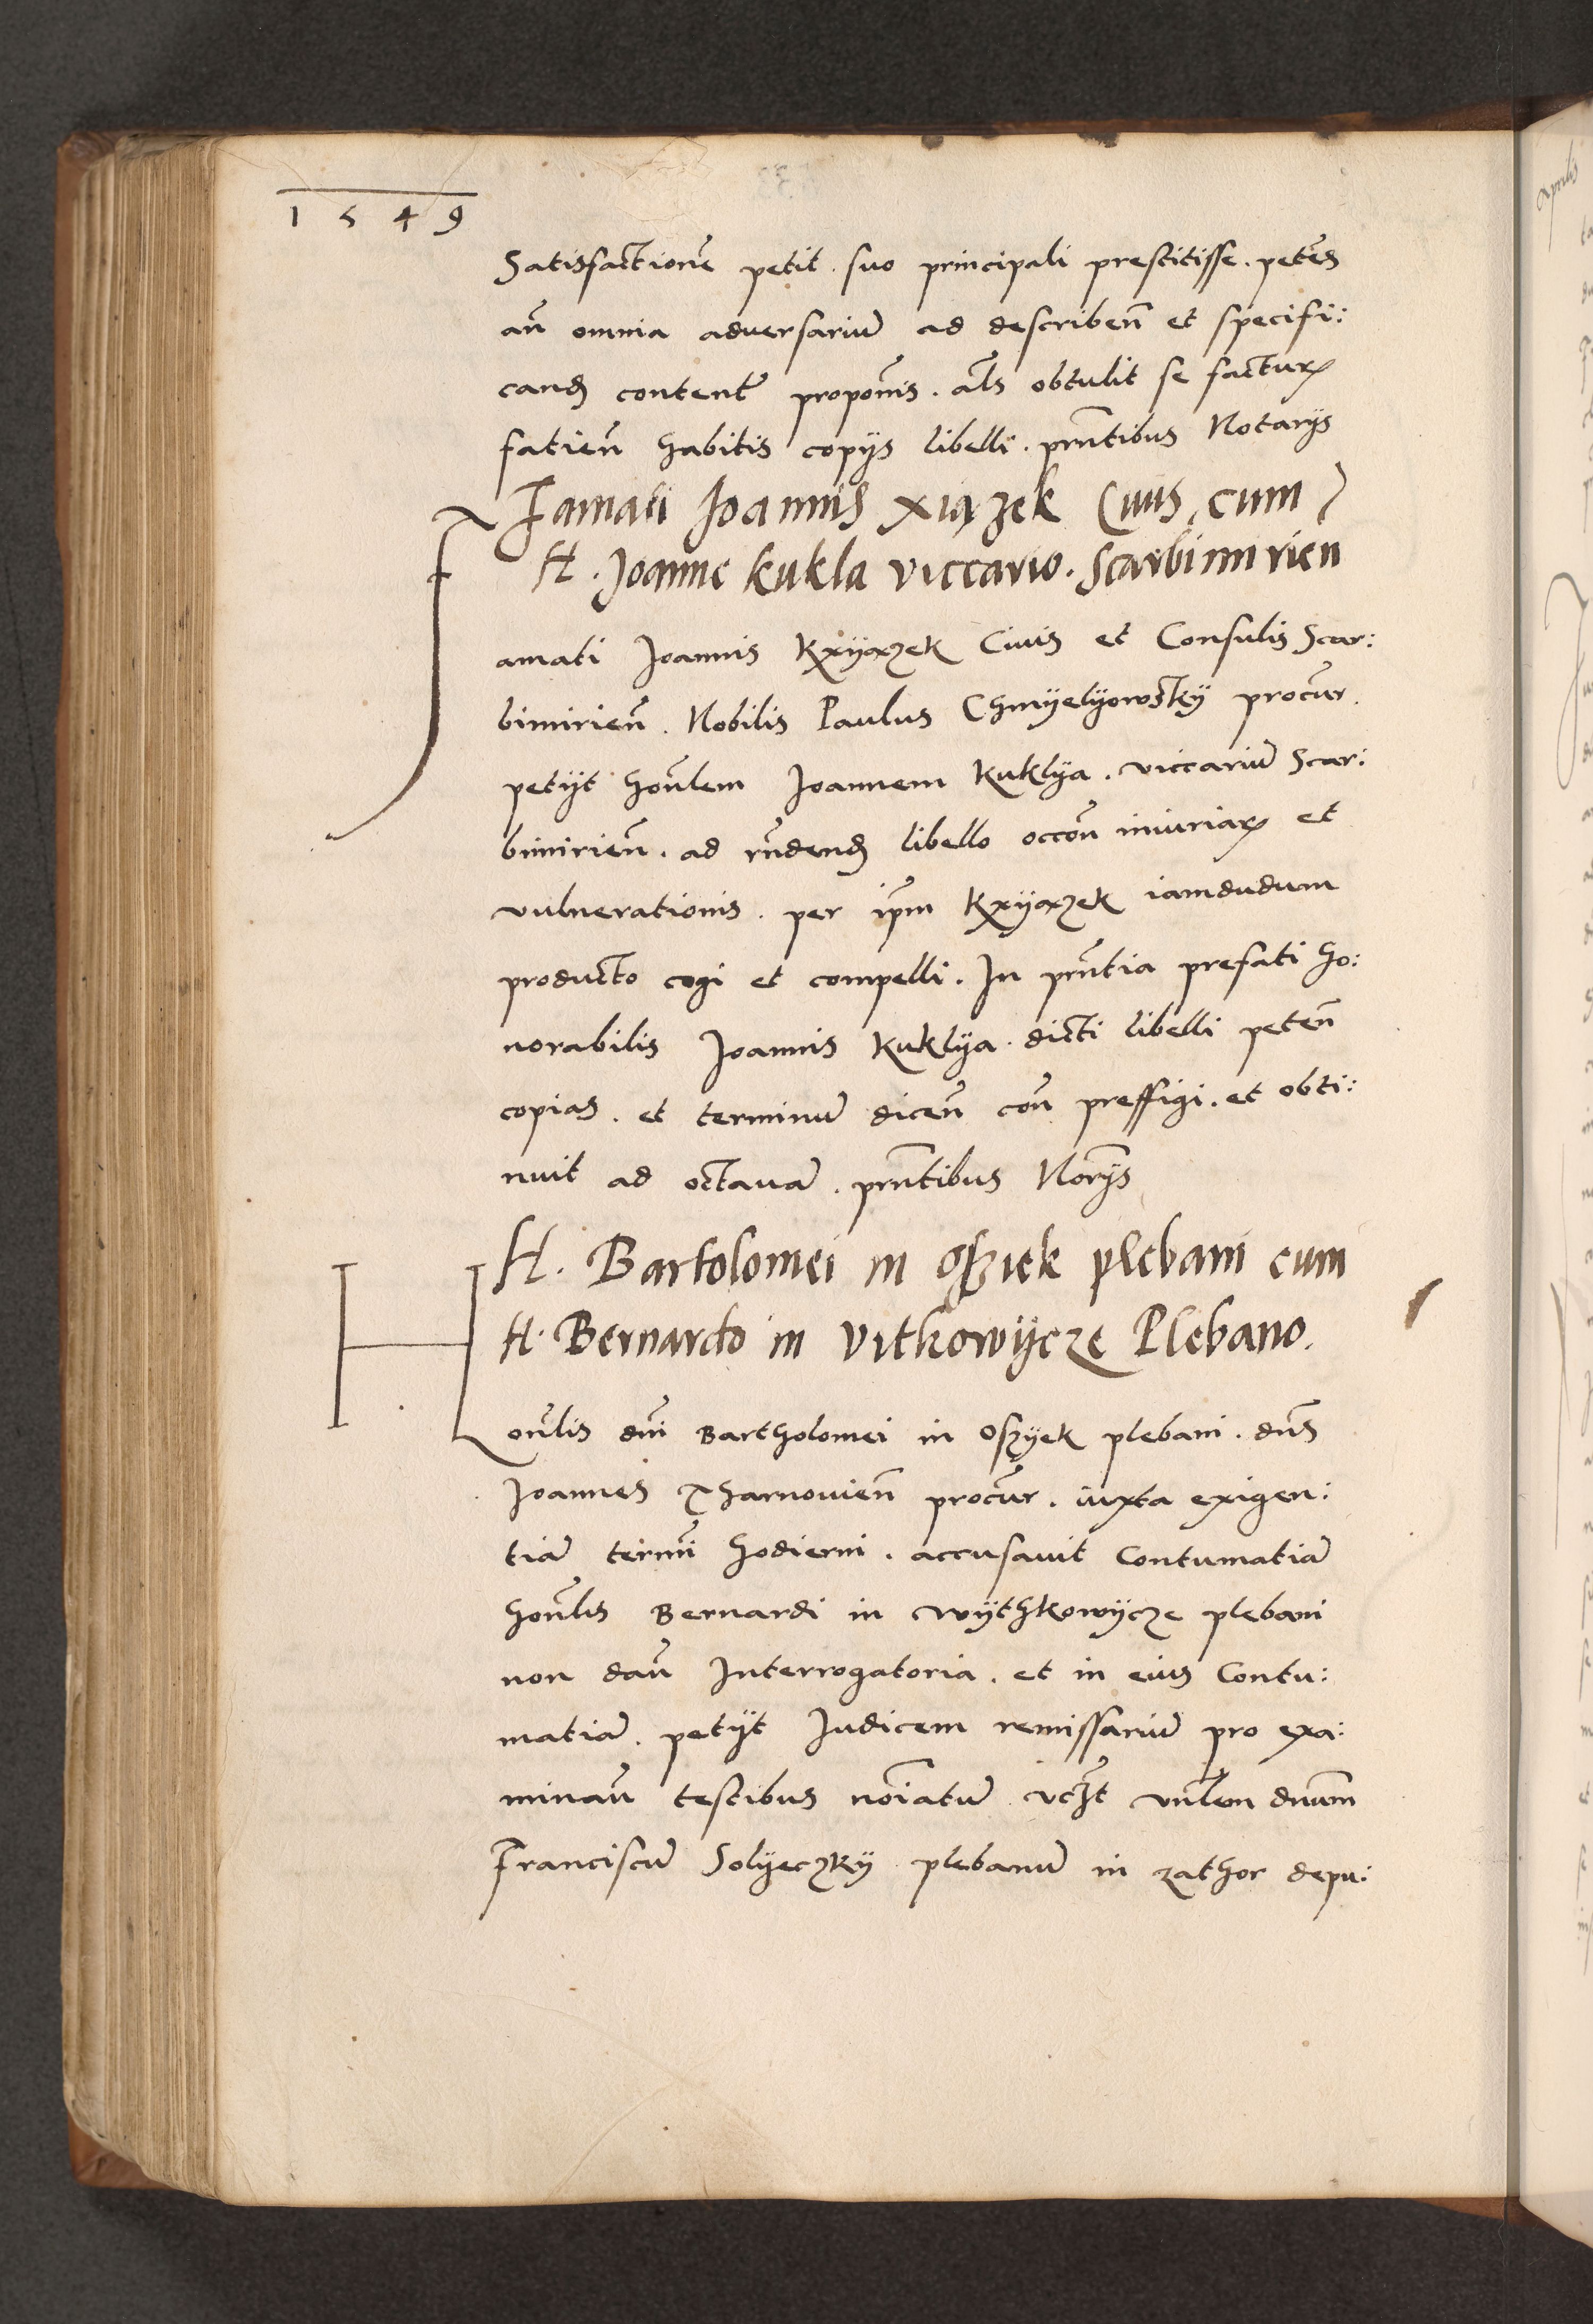 1549
Satisfactionē petit. suo principali prestitisse. petēs
an̄ omnia adversariū ad describen̄ et specifi:
cand contentꝭ proponīs. al̄s obtulit se facturꝝ
fatien̄ habitis copijs libelli. prn̄tibus Notarijs
Famati Joannis Xiązek Civis cum
H. Joanne kukla viccario. Scarbimirien
Famati Joannis Kxyązek Civis et Consulis Scar:
bimirien̄. Nobilis Paulus Chmyelyowsky procur̄.
petijt hon̄lem Joannem Kuklya. viccariū Scar:
bimirien̄. ad rn̄dend libello occon̄ iniuriaꝝ et
vulnerationis. per ip̄m Kxyązek iamdudum
producto cogi et compelli. In prn̄tia prefati ho:
norabilis Joannis Kuklya. dicti libelli peten̄
copias. et terminū dicen̄ con̄ preffigi. et obti:
nuit ad octavā. prn̄tibus Nor̄ijs
H. Bartolomei in Osziek plebani cum
H. Bernardo in Vitkowycze Plebano.
Hon̄lis dn̄i Bartholomei in Oszyek plebani. dn̄s
Joannes Tharnovien̄ procur̄. iuxta exigen:
tiā termī hodierni. accusavit Contumatiā
hon̄lis Bernardi in Wythkowycze plebani
non dan̄ Interrogatoria. et in eius Contu:
matiā. petijt Iudicem remissariū pro exa:
minan̄ testibus noīatū vcꝫt vn̄lem dnum̄
Franciscū Solyeczky plebanū in zathor depu: